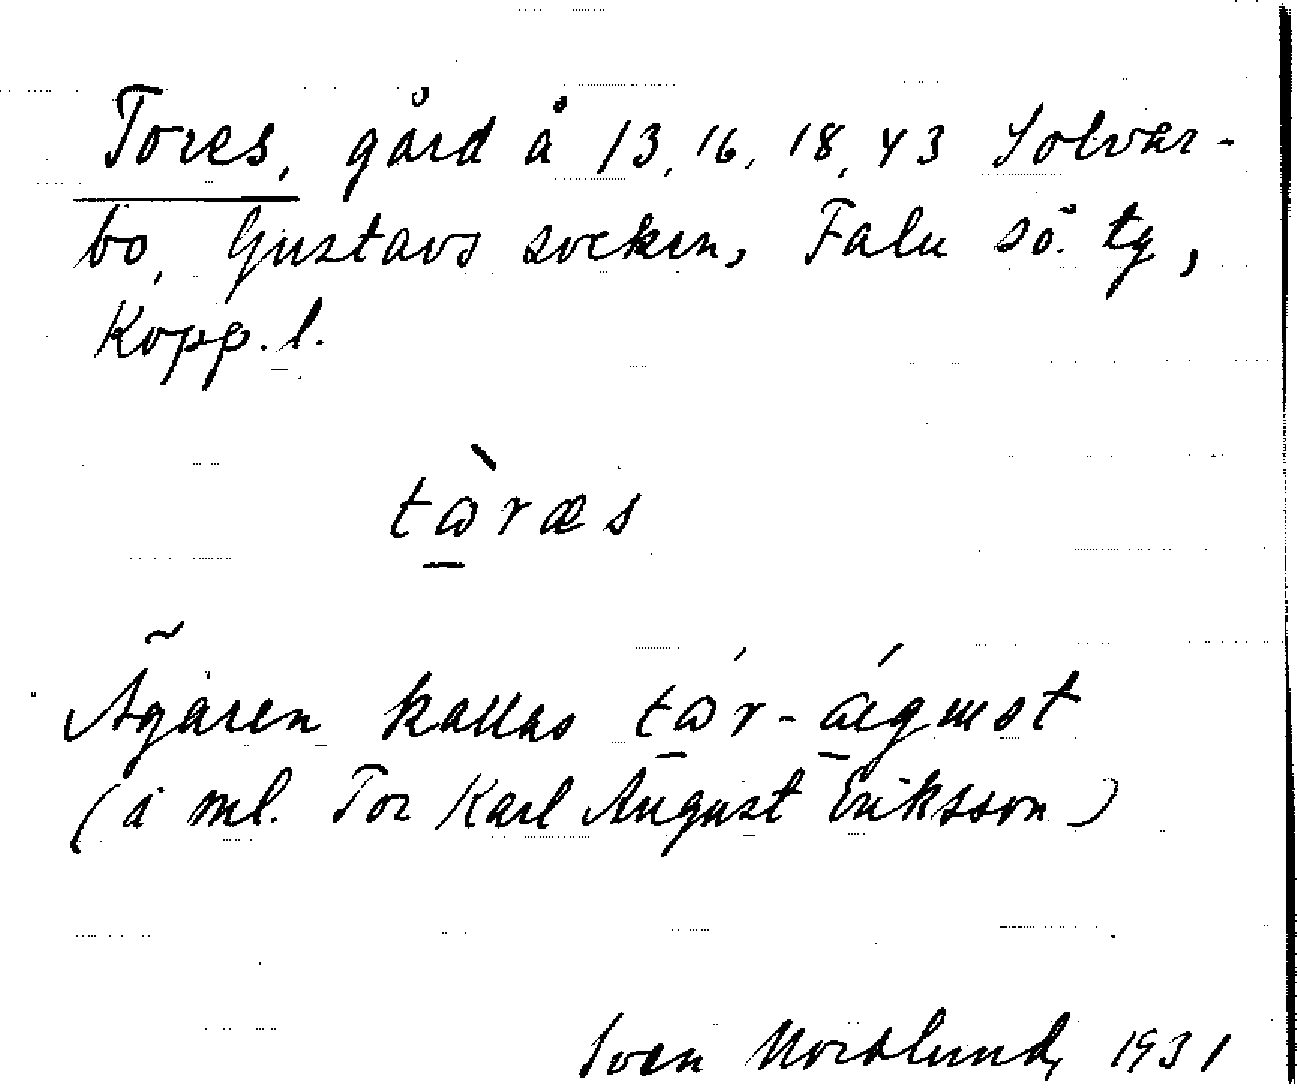 Tores, gård å 13, 16, 18, 43 Solvar-
bo, Gustavs socken, Falu sö. tg,
Kopp. l.
tɷ̀ræs
Ägaren kallas tɷ́r-áɡust
(å ml. Tor Karl August Eriksson)
Sven Nordlund, 1931